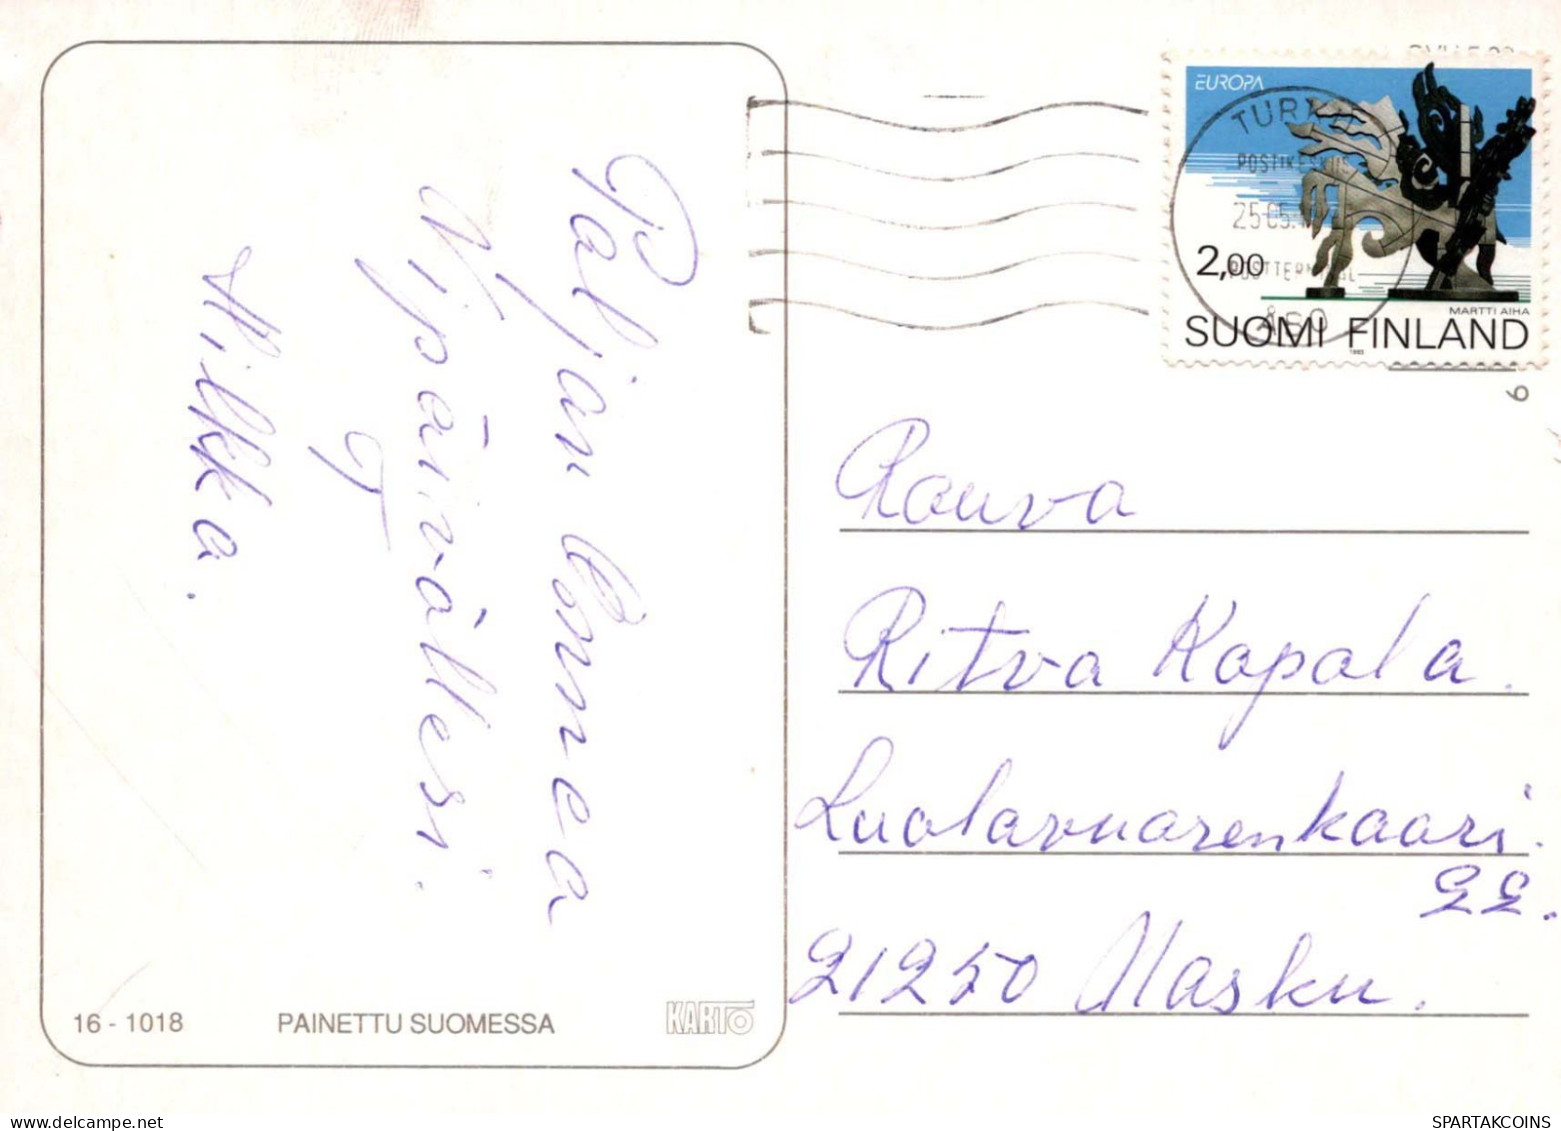 Paljan Onnea
Nipäivällesi.
T
Hilkka.
16 - 1018
PAINETTU SUOMESSA
KARTO
EUROPA
TURKU
POSTIKESKUS
25.05.
POSTTERMINAL
ÅBO
2,00
MARTTI AIHA
SUOMI FINLAND
1993
6
Rouva
Ritva Kopala.
Luolavuorenkaari.
22.
21250 Masku.
SPARTAKCOINS
delcampe.net